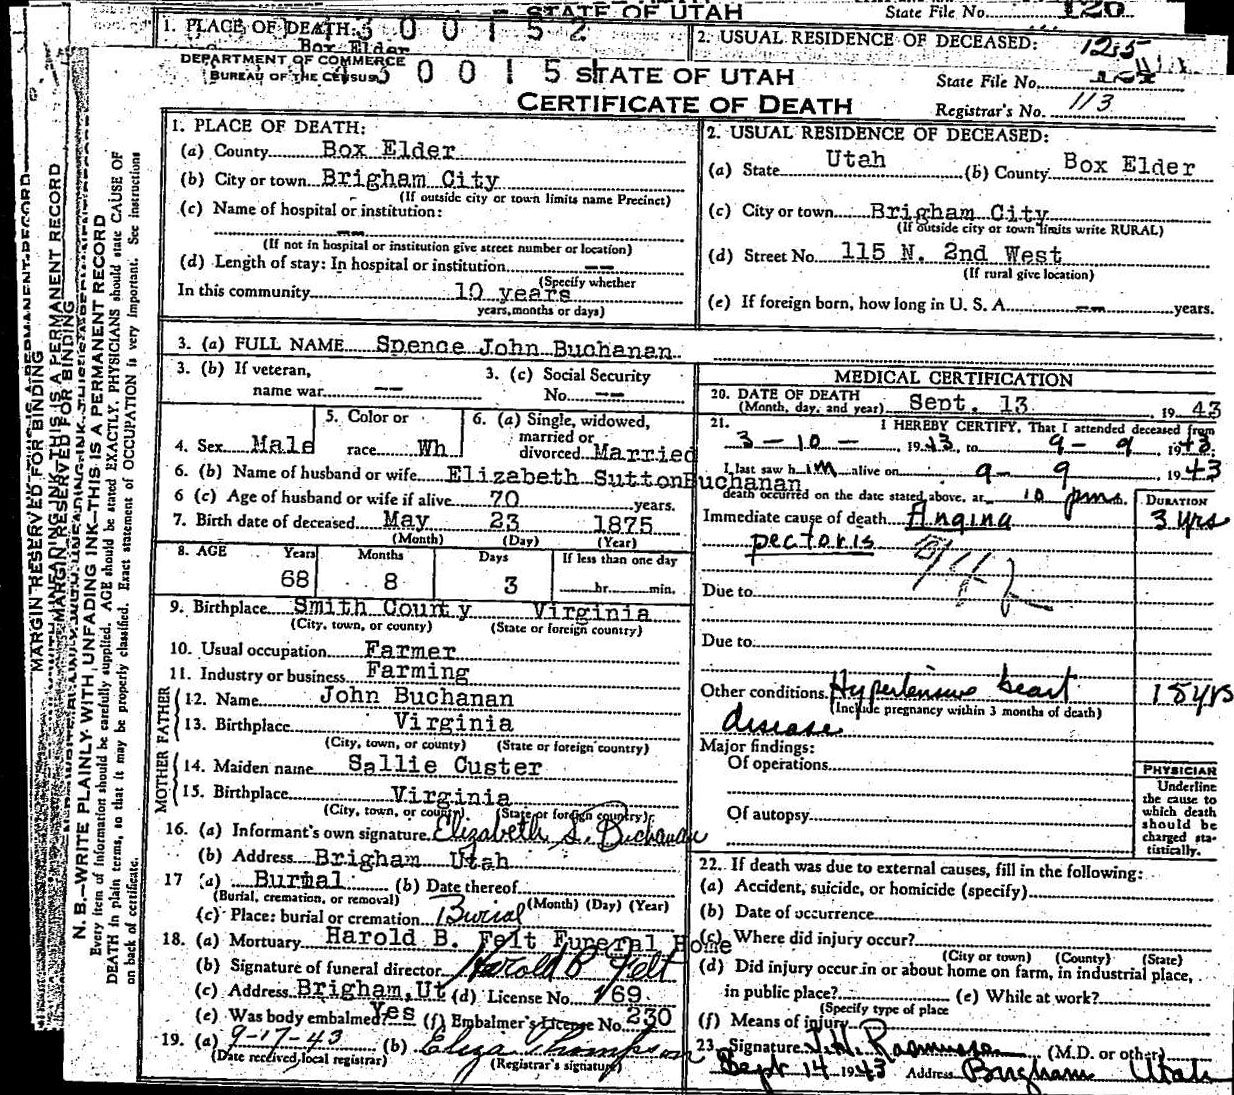 STATE OF UTAH
State File No. 120
1. PLACE OF DEATH: 300152
Box Elder
2. USUAL RESIDENCE OF DECEASED:
125
DEPARTMENT OF COMMERCE
BUREAU OF THE CENSUS
STATE OF UTAH
State File No.
CERTIFICATE OF DEATH
Registrar's No. 113
1. PLACE OF DEATH:
(a) County Box Elder
(b) City or town Brigham City
(If outside city or town limits name Precinct)
(c) Name of hospital or institution:
--
(If not in hospital or institution give street number or location)
(d) Length of stay: In hospital or institution --
(Specify whether
In this community 10 years
years, months or days)
2. USUAL RESIDENCE OF DECEASED:
(a) State Utah (b) County Box Elder
(c) City or town Brigham City
(If outside city or town limits write RURAL)
(d) Street No. 115 N. 2nd West
(If rural give location)
(e) If foreign born, how long in U. S. A. -- years.
3. (a) FULL NAME Spence John Buchanan
3. (b) If veteran,
name war --
3. (c) Social Security
No. --
4. Sex Male
5. Color or
race Wh
6. (a) Single, widowed,
married or
divorced Married
6. (b) Name of husband or wife Elizabeth Sutton Buchanan
6 (c) Age of husband or wife if alive 70 years.
7. Birth date of deceased May 23 1875
(Month) (Day) (Year)
8. AGE Years Months Days If less than one day
68 8 3 hr. min.
9. Birthplace Smith County Virginia
(City, town, or county) (State or foreign country)
10. Usual occupation Farmer
11. Industry or business Farming
FATHER
12. Name John Buchanan
13. Birthplace Virginia
(City, town, or county) (State or foreign country)
MOTHER
14. Maiden name Sallie Custer
15. Birthplace Virginia
(City, town, or county) (State or foreign country)
16. (a) Informant's own signature Elizabeth S. Buchanan
(b) Address Brigham Utah
17 (a) Burial (b) Date thereof
(Burial, cremation, or removal) (Month) (Day) (Year)
(c) Place: burial or cremation Burial
18. (a) Mortuary Harold B. Felt Funeral Home
(b) Signature of funeral director Harold B Felt
(c) Address Brigham, Ut (d) License No. 169
(e) Was body embalmed? Yes (f) Embalmer's License No. 230
19. (a) 9-17-43 (b) Eliza Thompson
(Date received local registrar) (Registrar's signature)
MEDICAL CERTIFICATION
20. DATE OF DEATH
(Month, day, and year) Sept. 13, 1943
21. I HEREBY CERTIFY, That I attended deceased from
3-10-, 1943, to 9-9, 1943;
I last saw him alive on 9-9 1943
death occurred on the date stated above, at 10 pm m.
DURATION
Immediate cause of death Angina 3 yrs
pectoris
Due to
Due to
Other conditions Hypertensive heart 15 yrs
(Include pregnancy within 3 months of death)
disease
Major findings:
Of operations
Of autopsy
PHYSICIAN
Underline
the cause to
which death
should be
charged sta-
tistically.
22. If death was due to external causes, fill in the following:
(a) Accident, suicide, or homicide (specify)
(b) Date of occurrence
(c) Where did injury occur?
(City or town) (County) (State)
(d) Did injury occur in or about home on farm, in industrial place,
in public place? (e) While at work?
(Specify type of place
(f) Means of injury
23. Signature Rasmussen (M.D. or other)
Sept 14 1943 Address Brigham Utah
MARGIN RESERVED FOR BINDING
N. B.—WRITE PLAINLY WITH UNFADING INK—THIS IS A PERMANENT RECORD
Every item of information should be carefully supplied. AGE should be stated EXACTLY. PHYSICIANS should state CAUSE OF
DEATH in plain terms, so that it may be properly classified. Exact statement of OCCUPATION is very important. See instructions
on back of certificate.